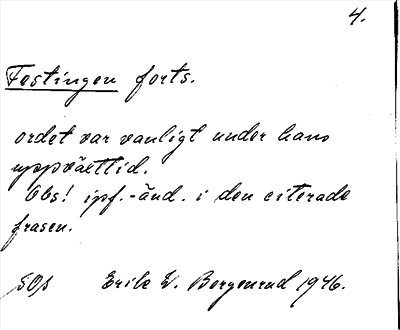 4.
Fostingen forts.
ordet var vanligt under hans
uppväxttid.
Obs! ipf.-änd. i den citerade
frasen.
Erik W. Bergenrud 1946.